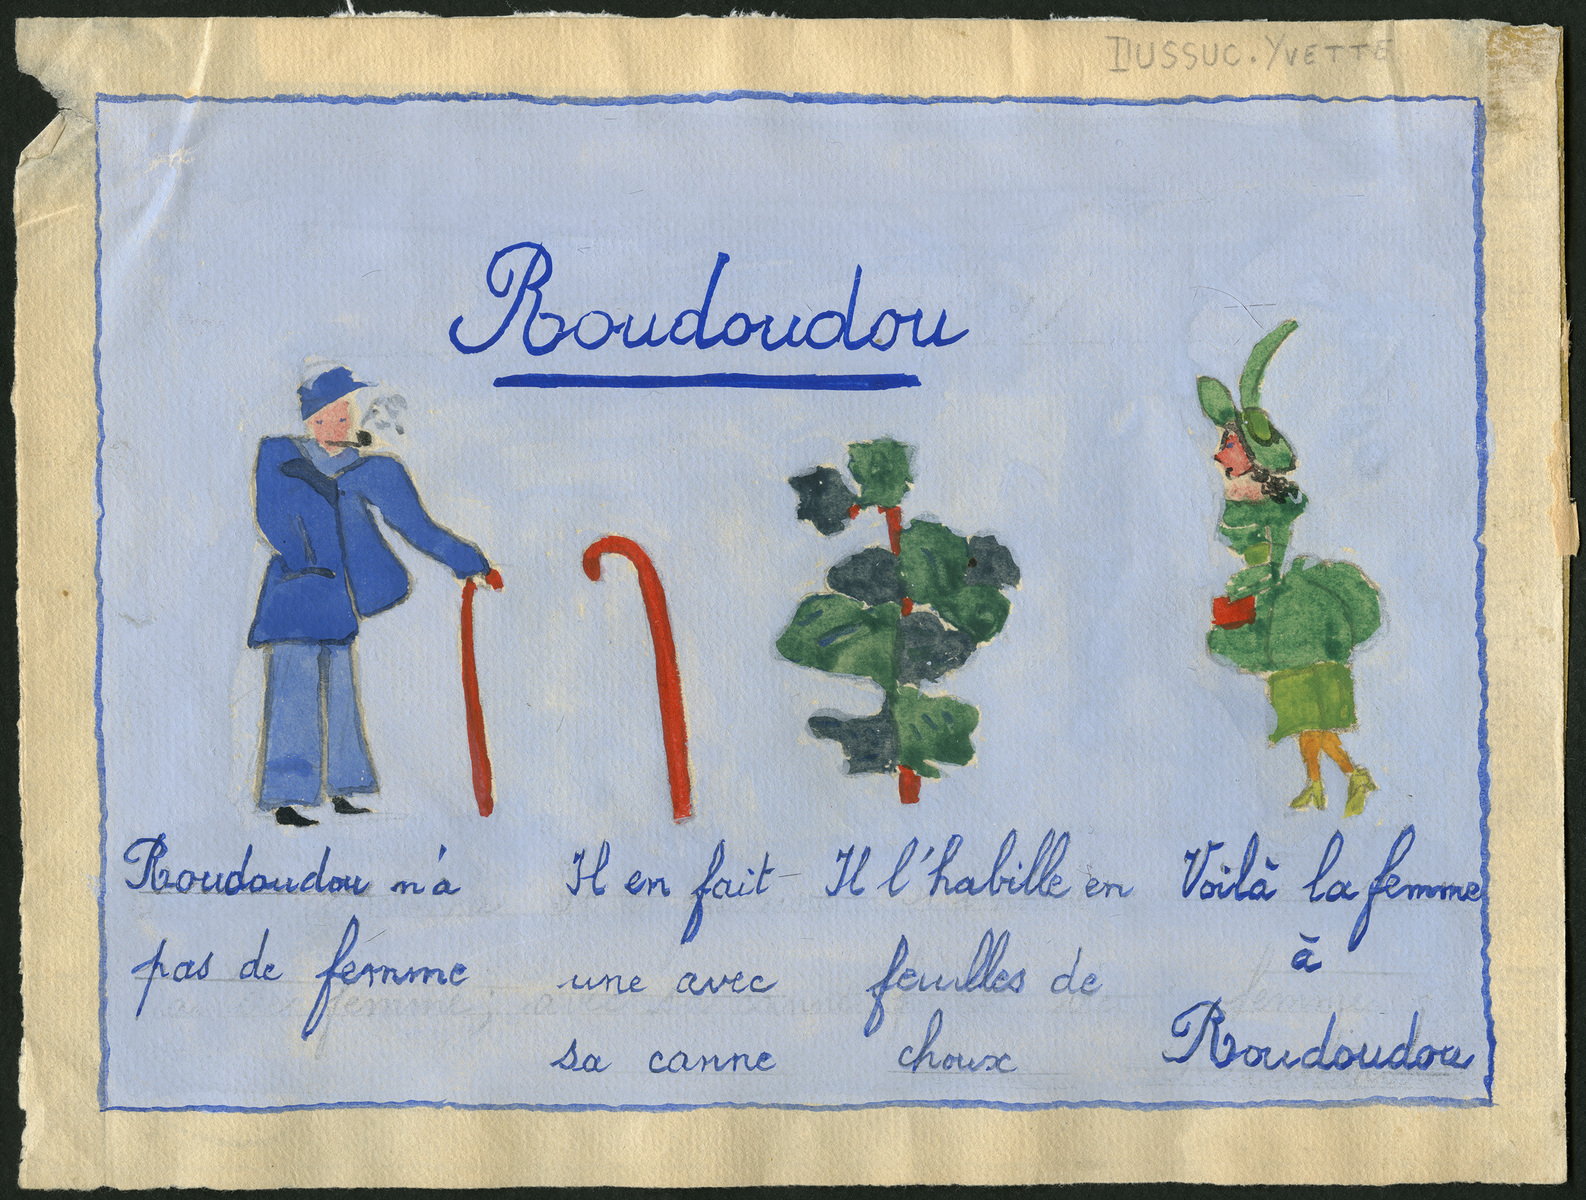 DUSSUC. YVETTE
Roudoudou
Roudoudou n'a
pas de femme
Il en fait
une avec
sa canne
Il l'habille en
feuilles de
choux
Voilà la femme
à
Roudoudou